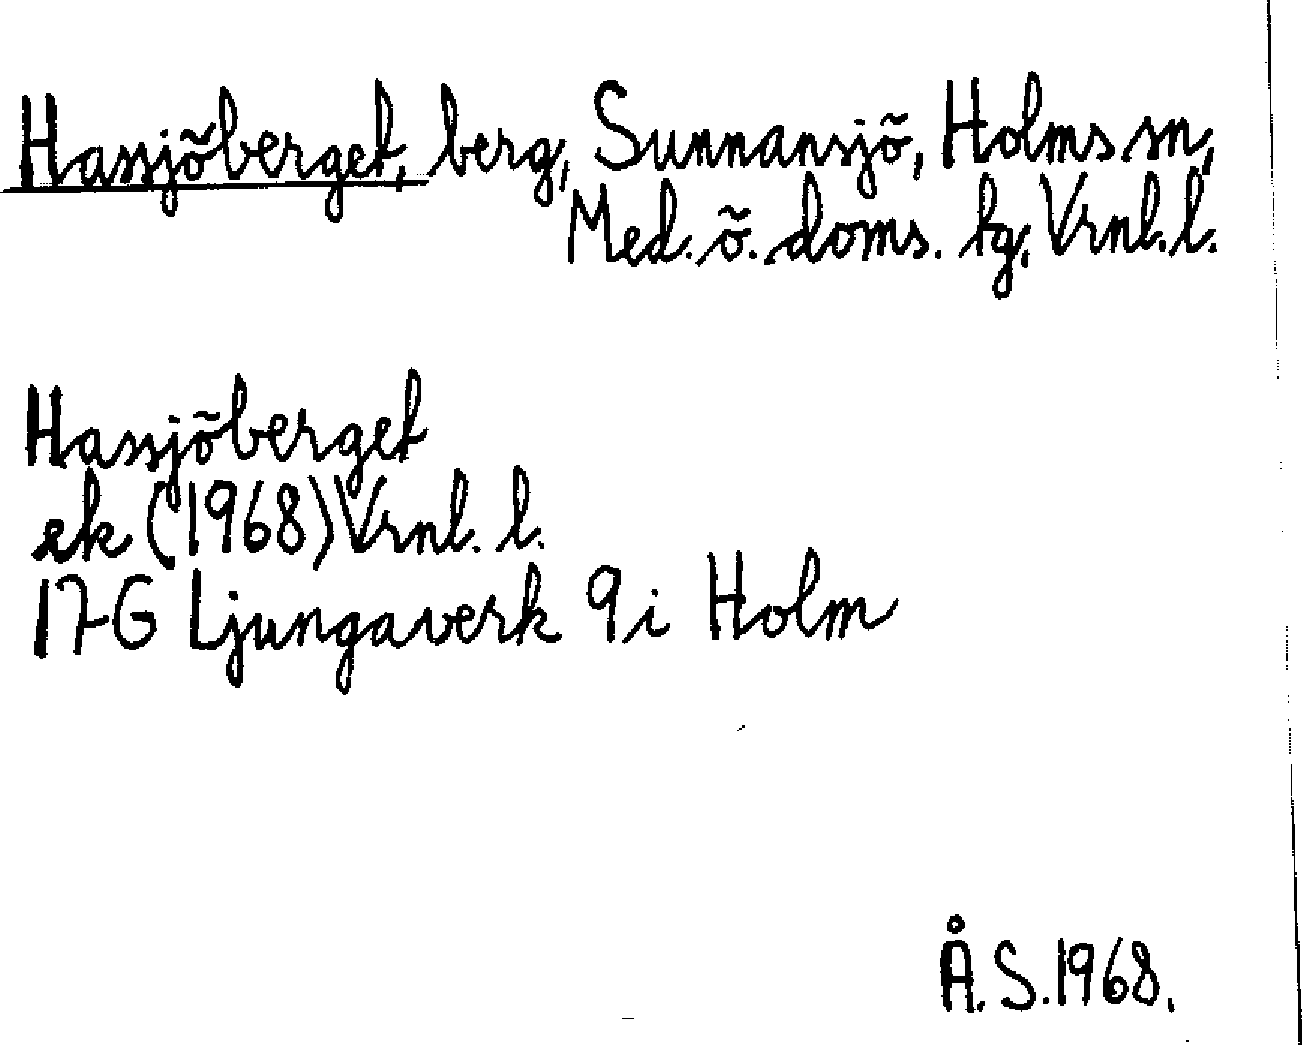 Hassjöberget, berg, Sunnansjö, Holms sn,
Med. ö. doms. tg. Vrnl. l.
Hassjöberget
ek (1968) Vrnl. l.
17G Ljungaverk 9i Holm
Å. S. 1968.